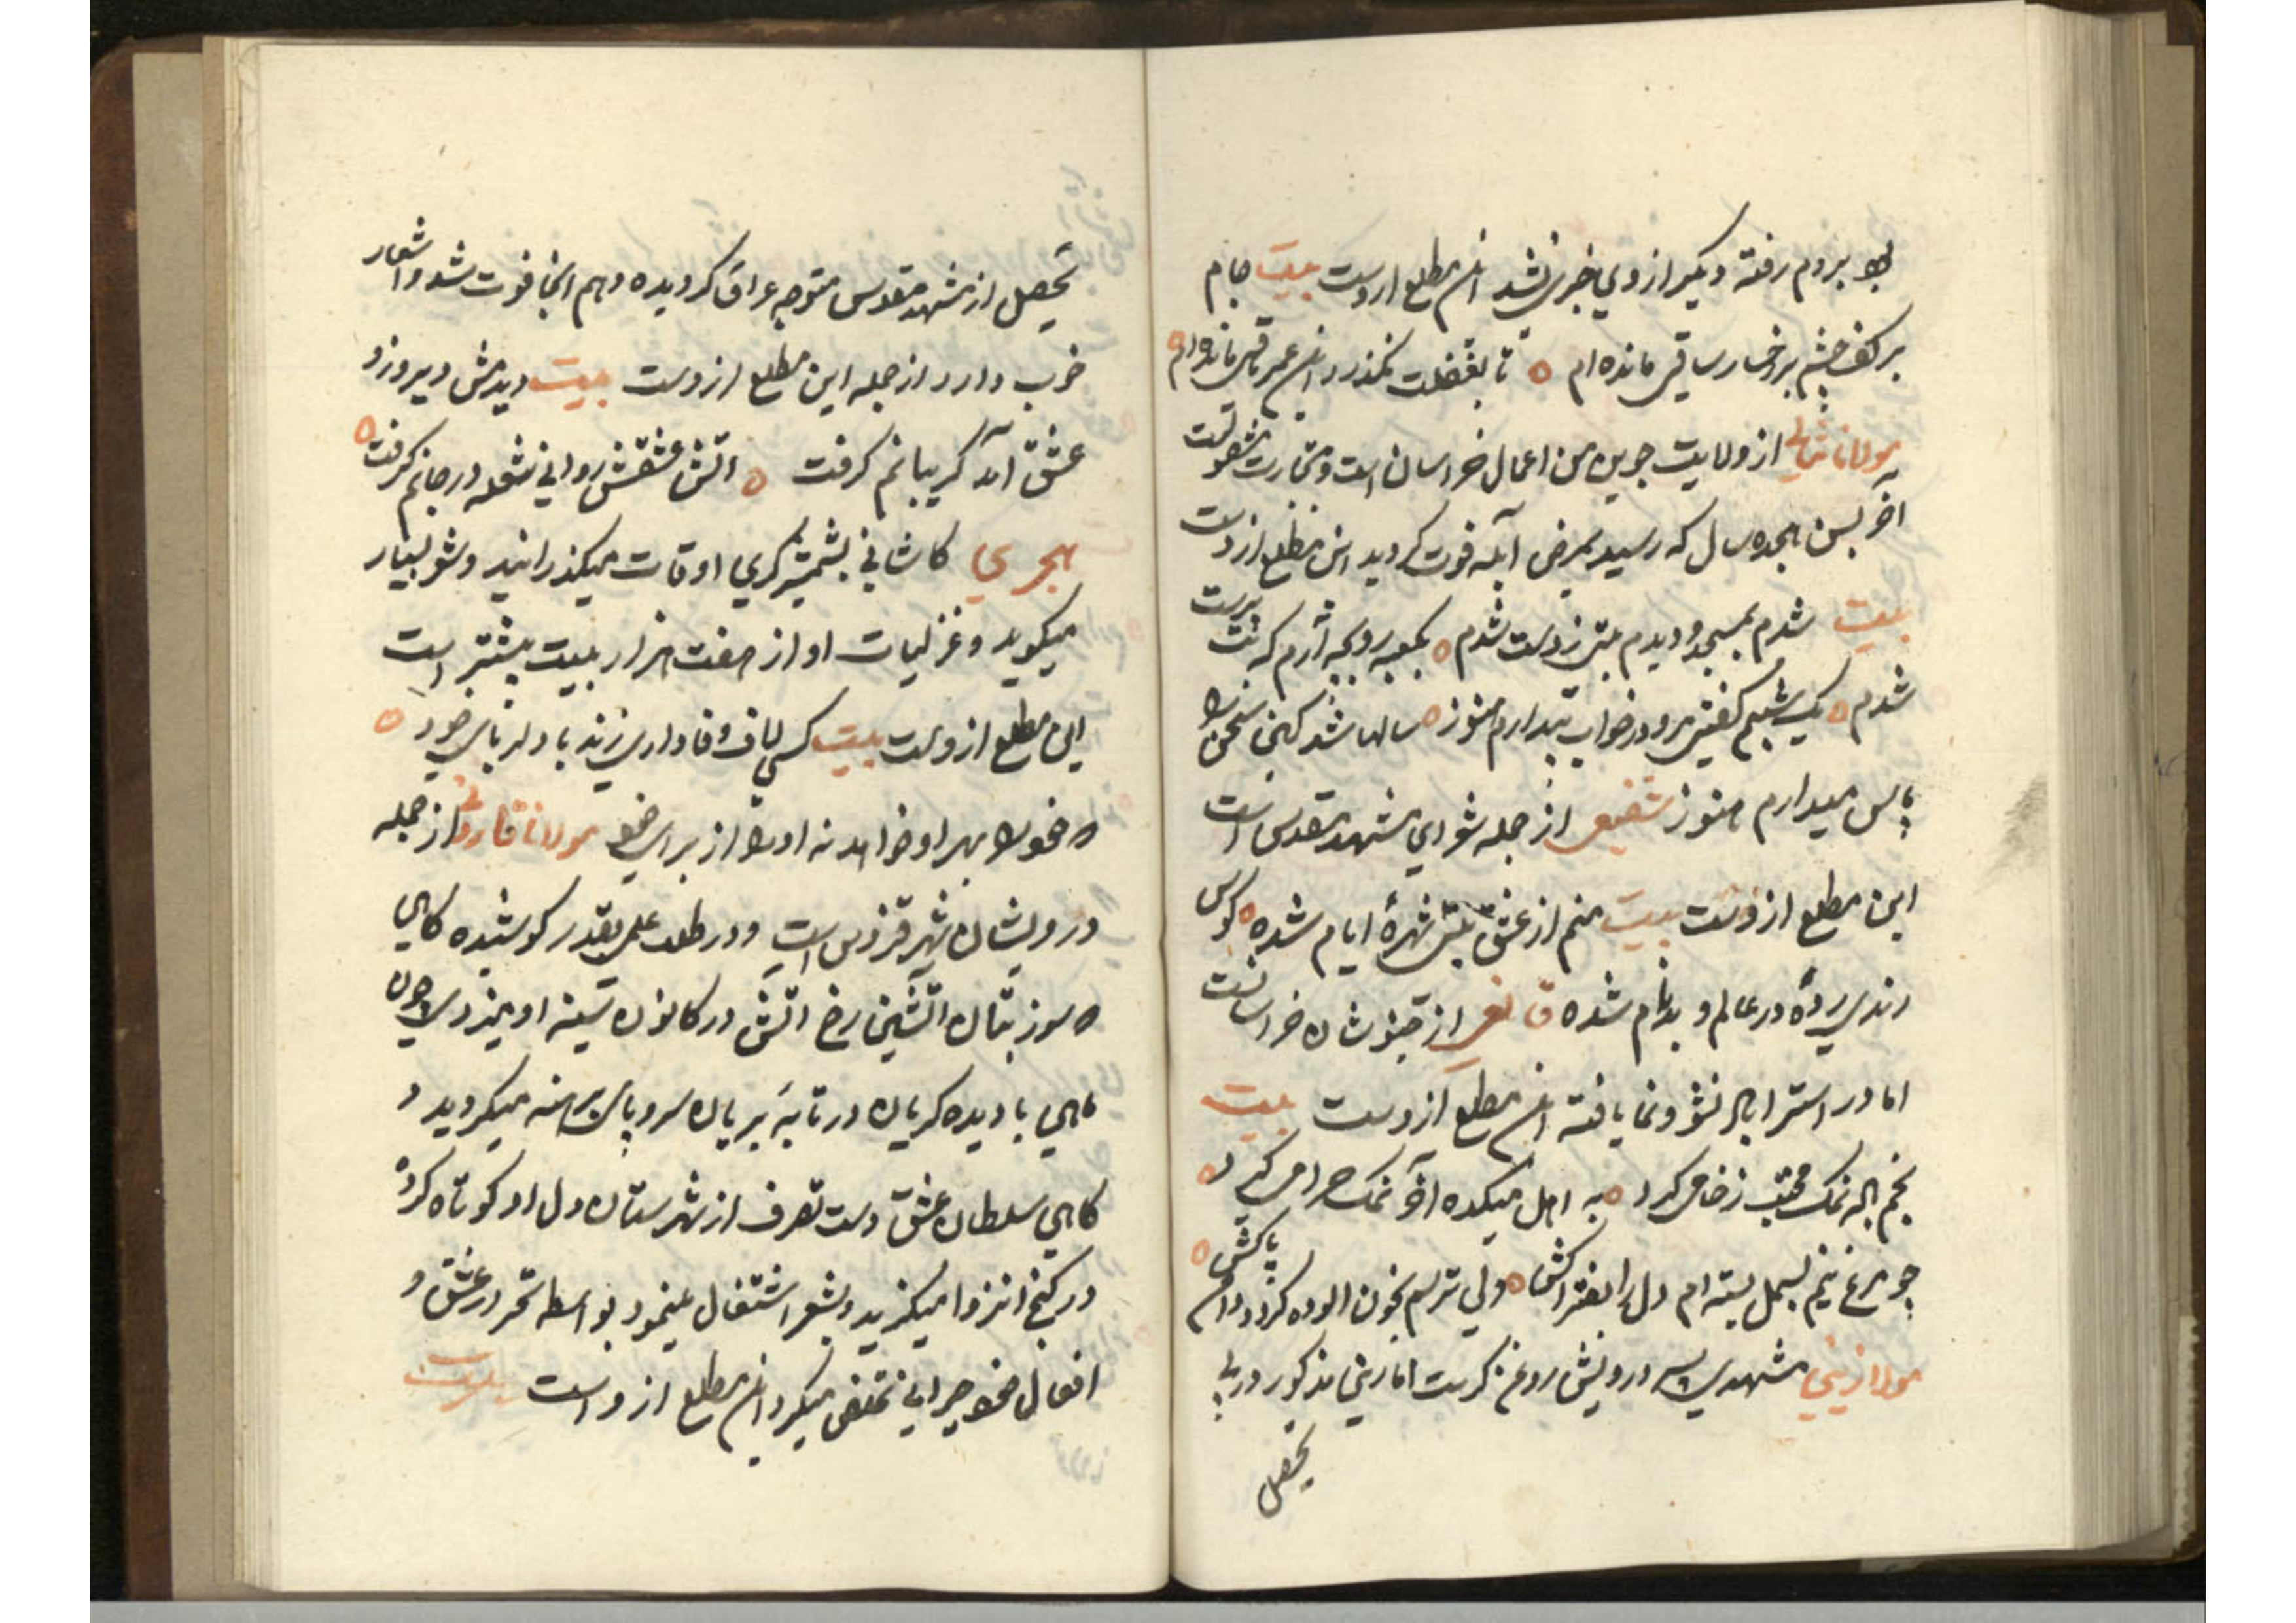 بروم رفته دیگر از وی خبری نشد این مطلع از وست بیت جام
بر کف چشم بر رخسار ساقی مانده ام ه تا بغفلت نگذرد این عمر باقی مانده ام ه
مولانا از ولایت جوین من اعمال خراسان است و بتجارت مشغولست
آخر بسن هجده سال که رسید بمرض آبله فوت کردید این مطلع ازوست
بیت شدم بمسجد و دیدم بتی ز دست شدم ه بکعبه رو بچه آرم که بت پرست
شدم ه یک شبم گفتی مرو در خواب بیدارم هنوز ه سالها شد کین سخن را
پاس میدارم هنوز شفیعی از جمله شعرای مشهد مقدس است
این مطلع از وست بیت منم از عشق بتی شهرهٔ ایام شده ه کوس
رندی زده در عالم و بدنام شده قانعی از خبوشان خراسانست
اما در استراباد نشو و نما یافته این مطلع ازوست بیت
نمک محتسب ز خامی کرد ه به اهل میکده آخر نمک حرامی کرد ه
چو مرغ نیم بسمل بسته ام دل را بفتراکش ه ولی ترسم بخون آلوده کردد دامن پاکش ه
مولانا زینی مشهدی پسر درویش روغن کرست اما زینی مذکور در پی
تحصیل
تحصیل از مشهد مقدس متوجه عراق کردیده و هم آنجا فوت شد و اشعار
خوب دارد از جمله این مطلع ازوست بیت دیدمش دیروز و
عشق آمد کریبانم کرفت ه آتش عشقش روانی شعله در جانم کرفت ه
هجری کاشانی بشمشیرکری اوقات میکذرانید و شعر بسیار
میکوید و غزلیات او از هفت هزار بیت بیشتر است
این مطلع ازوست بیت کسی لاف وفاداری زند با دلربای خود ه
که خود را بهر او خواهد نه او را از برای خود مولانا از جمله
درویشان شهر قزوین است و در طلب علم بقدر کوشیده کاهی
که سوز بتان آتشین رخ آتش در کانون سینه او میزد چون
ماهی با دیده کریان در تابه بریان سر و پای برهنه میکردید و
کاهی سلطان عشق دست تصرف از شهرستان دل او کوتاه کرده
در کنج انزوا میکزید و بشعر اشتغال مینمود بواسطه تحیر در عشق و
افعال خود حیرانی تخلص میکرد این مطلع ازو است بیت